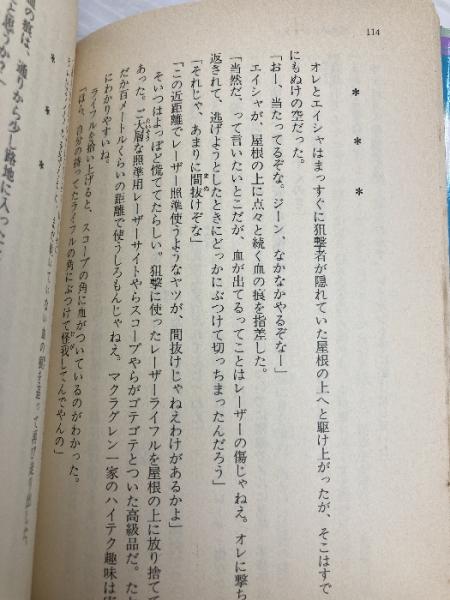 114
＊ ＊ ＊
オレとエイシャはまっすぐに狙撃者が隠れていた屋根の上へと駆け上がったが、そこはすで
にもぬけの空だった。
「おー、当たってるぞな。ジーン、なかなかやるぞなー」
エイシャが、屋根の上に点々と続く血の痕を指差した。
「当然だ、って言いたいとこだが、血が出てるってことはレーザーの傷じゃねえ。オレに撃ち
返されて、逃げようとしたときにどっかにぶつけて切っちまったんだろう」
「それじゃ、あまりに間抜けぞな」
「この近距離でレーザー照準使うようなヤツが、間抜けじゃねえわけがあるかよ」
そいつはよっぽど慌ててたらしい。狙撃に使ったレーザーライフルを屋根の上に放り捨てて
あった。ご大層な照準用レーザーサイトやらスコープやらがゴテゴテとついた高級品だ。たか
だか百メートルくらいの距離で使うしろもんじゃねえ。マクラグレン一家のハイテク趣味は実
にわかりやすいね。
ライフルを拾い上げると、スコープの角に血がついているのがわかった。
「ほら、自分の持ってたライフルの角にぶつけて怪我してんでやんの」
＊ ＊ ＊
の痕は、通りから少し路地に入った
と思うか？」